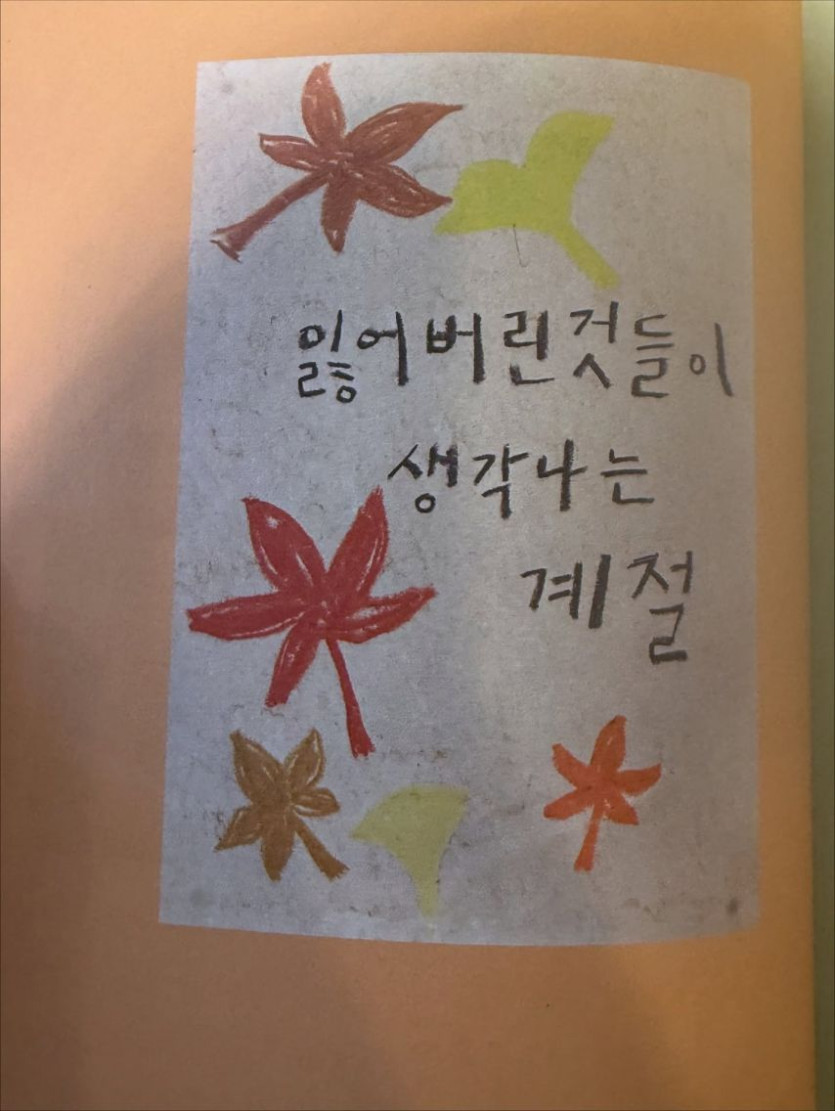 잃어버린것들이
생각나는
계절